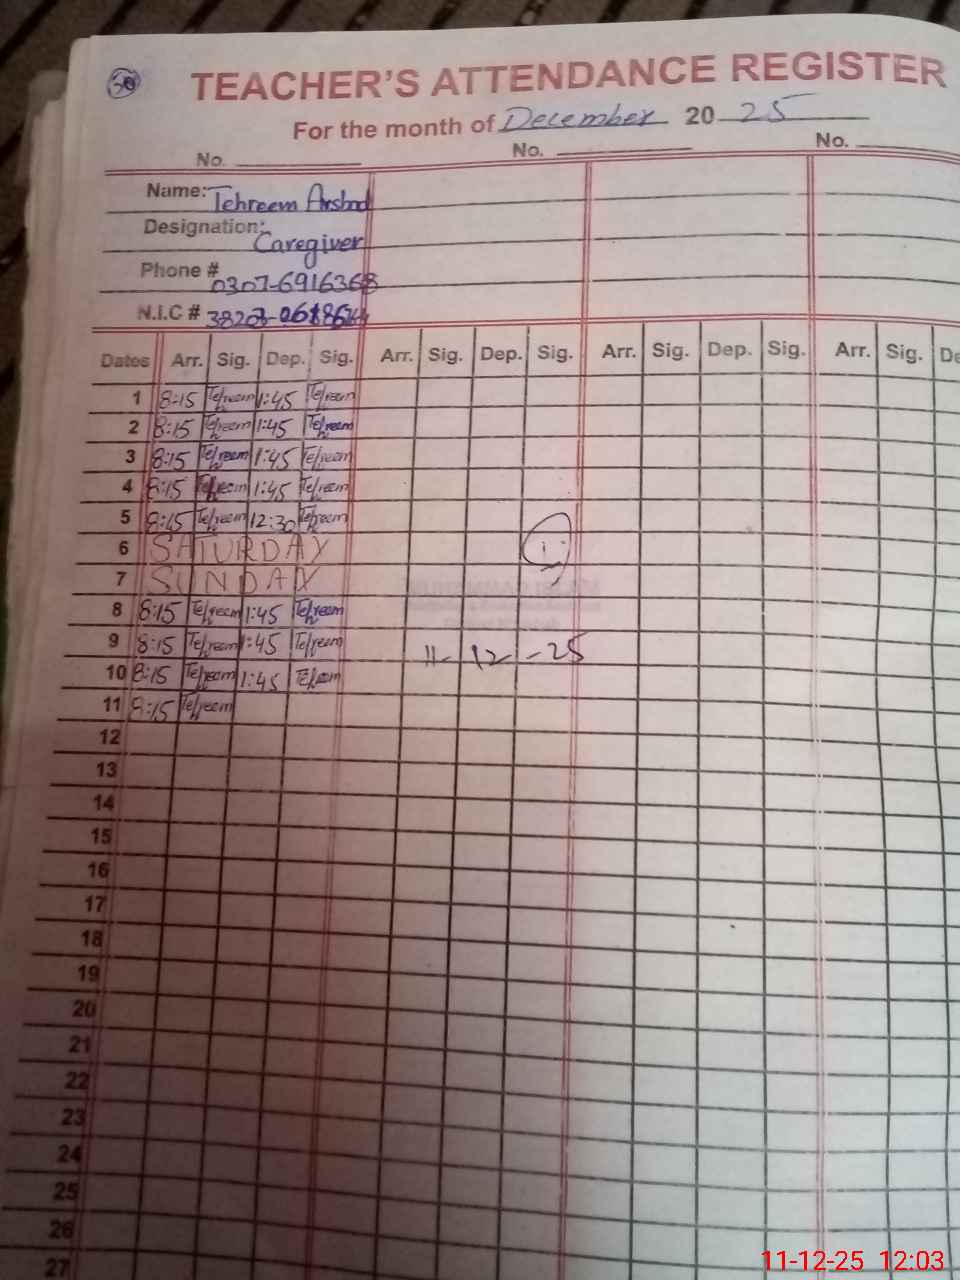 30
TEACHER'S ATTENDANCE REGISTER
For the month of December 20 25
No. No. No.
Name: Tehreem Arshad
Designation: Caregiver
Phone # 0307-6916368
N.I.C #
Dates Arr. Sig. Dep. Sig. Arr. Sig. Dep. Sig. Arr. Sig. Dep. Sig. Arr. Sig. De
1 8:15 Tehreem 1:45 Tehreem
2 8:15 Tehreem 1:45 Tehreem
3 8:15 Tehreem 1:45 Tehreem
4 8:15 Tehreem 1:45 Tehreem
5 8:15 Tehreem 12:30 Tehreem
6 SATURDAY
7 SUNDAY
8 8:15 Tehreem 1:45 Tehreem
9 8:15 Tehreem 1:45 Tehreem
11-12-25
10 8:15 Tehreem 1:45 Tehreem
11 8:15 Tehreem
12
13
14
15
16
17
18
19
20
21
22
23
24
25
26
27
11-12-25 12:03